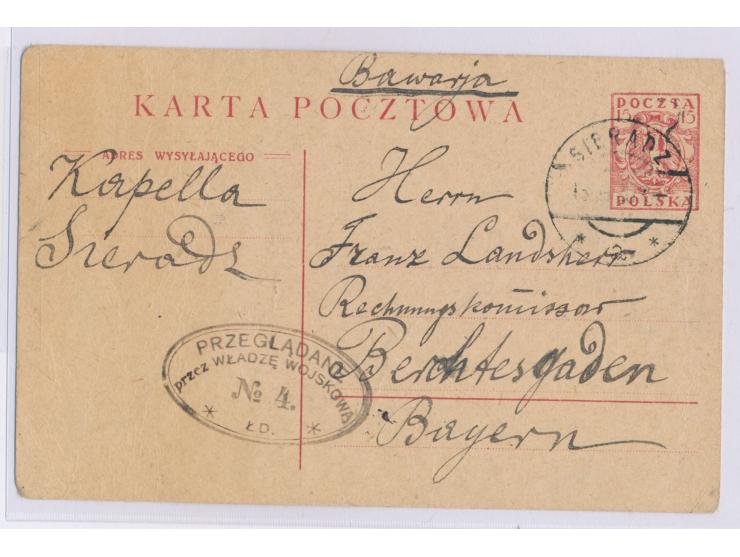 Bawarja
KARTA POCZTOWA
POCZTA
15 15
POLSKA
SIERADZ
ADRES WYSYŁAJĄCEGO
Kapella
Sieradz
Herrn
Franz Landsherr
Rechnungskom̅issar
Berchtesgaden
Bayern
PRZEGLĄDANE
przez WŁADZĘ WOJSKOWĄ
№ 4.
* Ł D. *